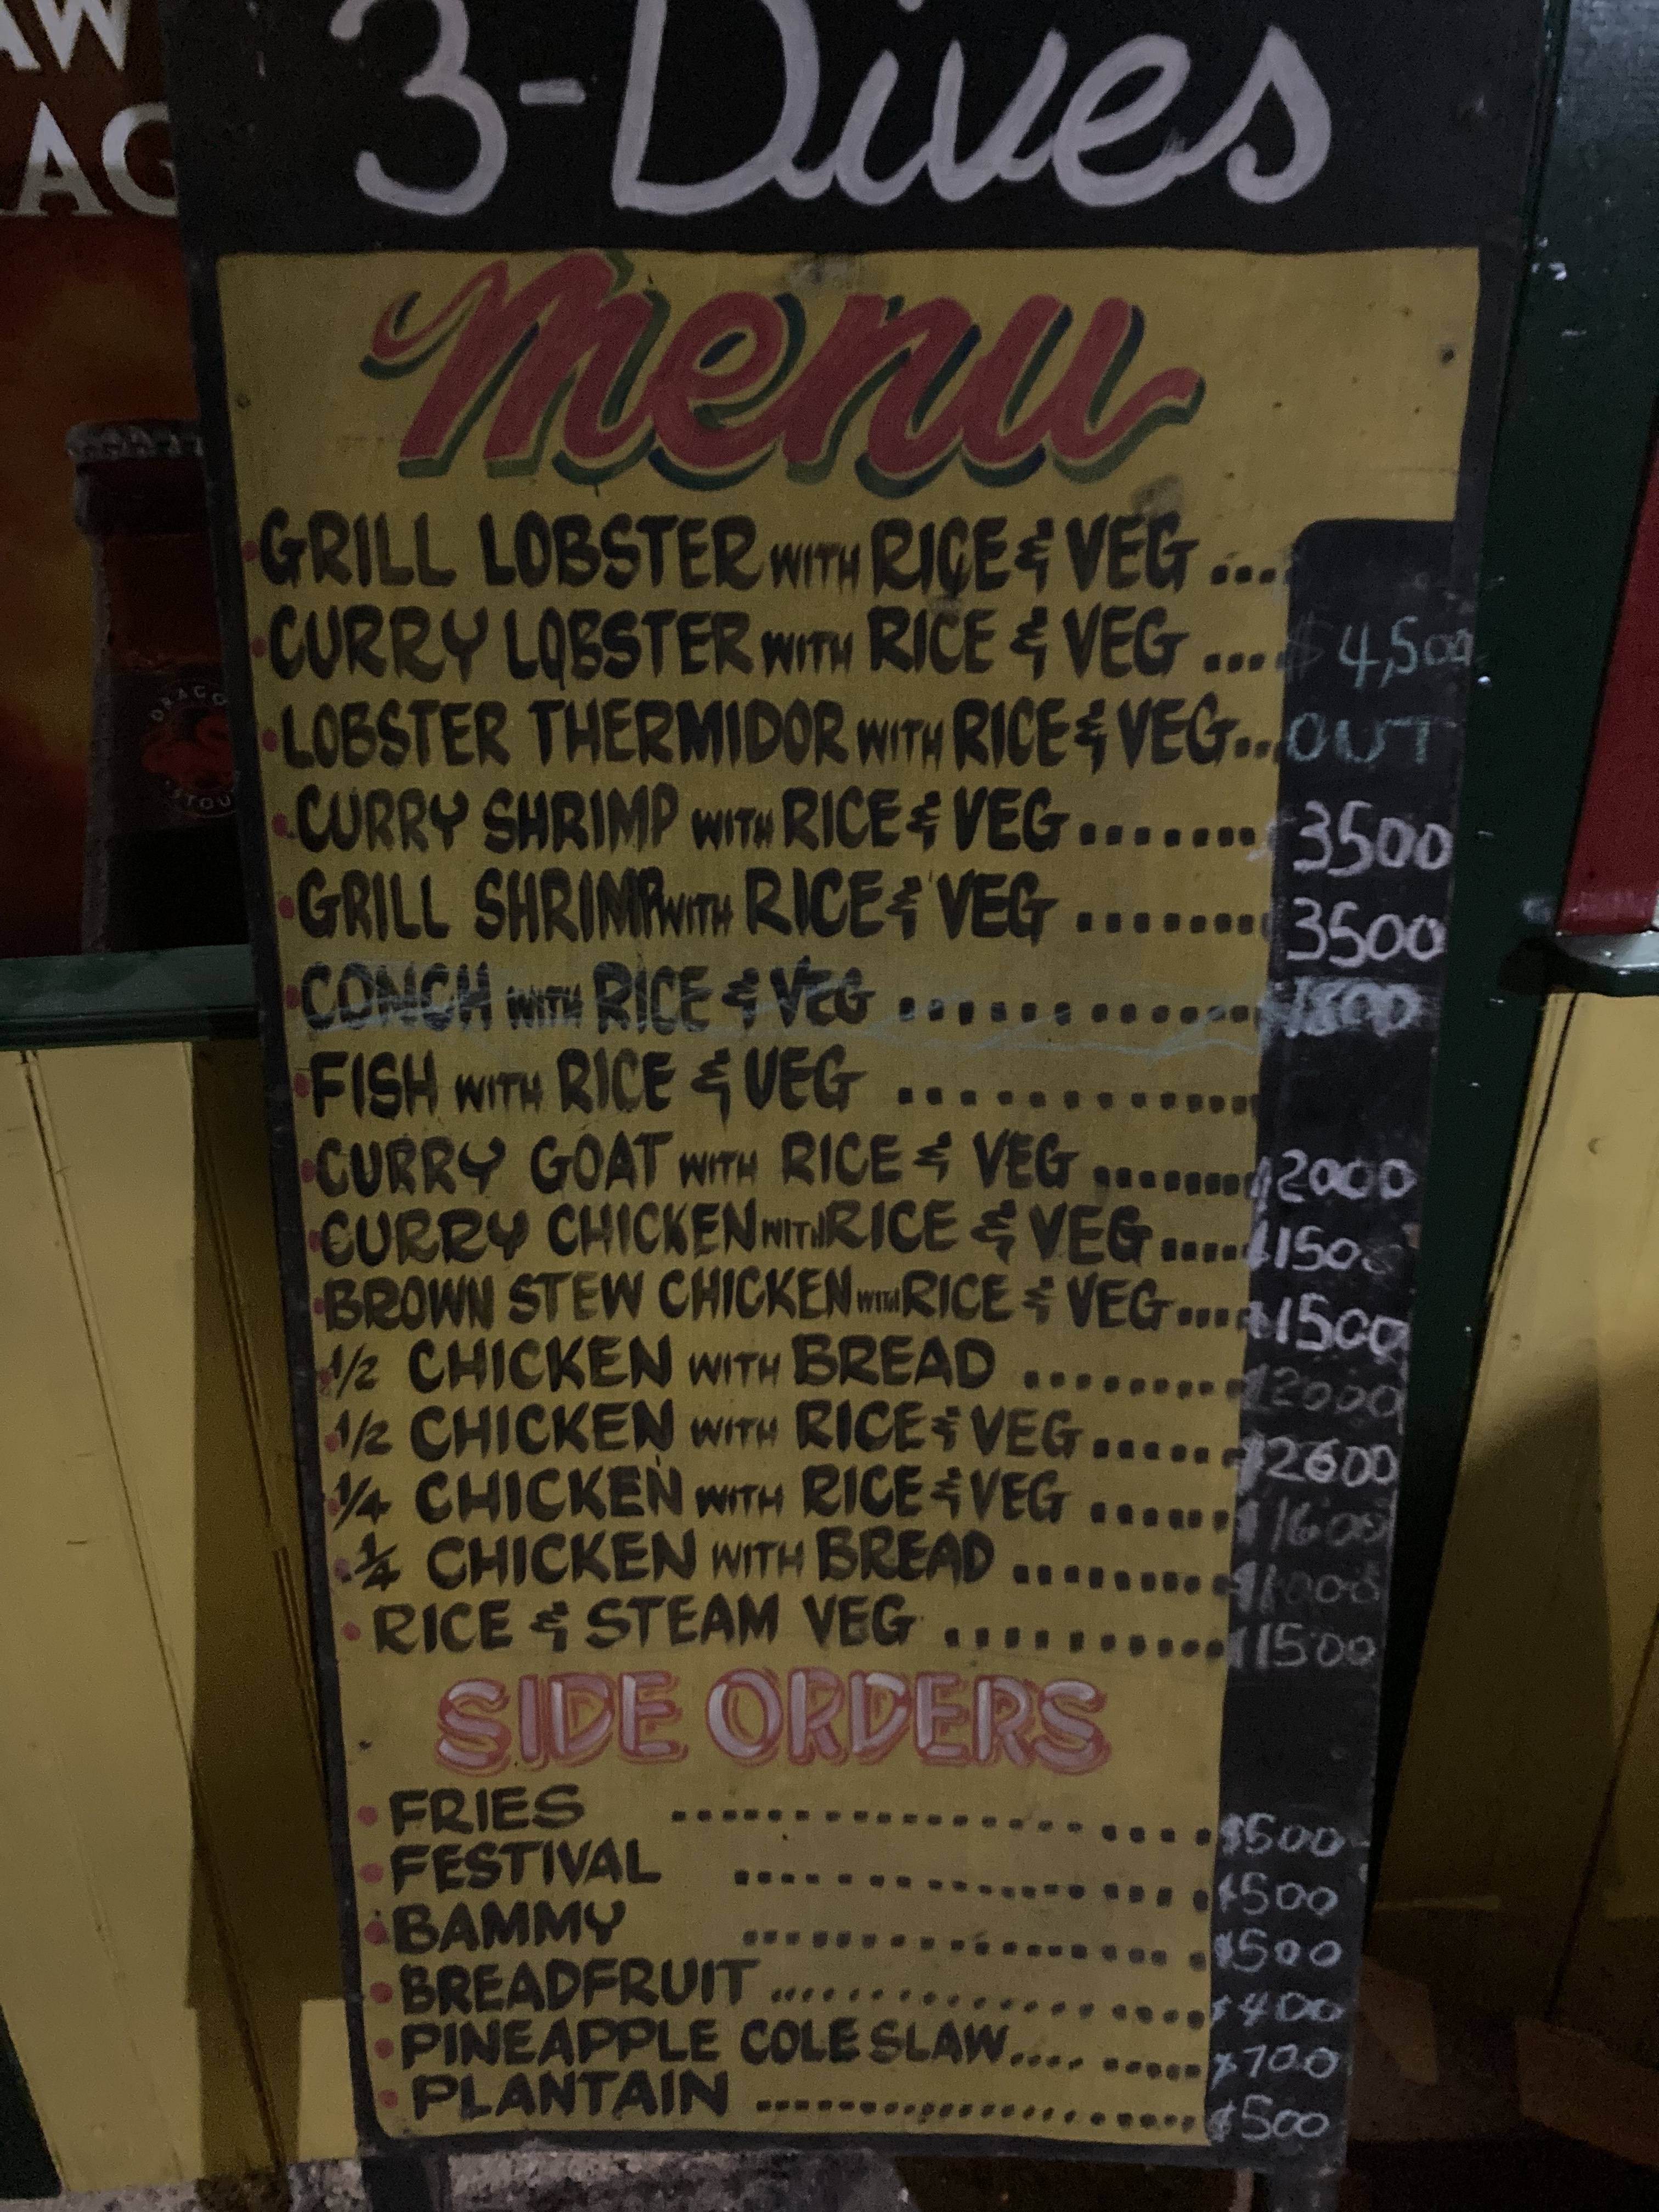 AW
AG
DRAGO
STOU
3-Dives
menu
GRILL LOBSTER WITH RICE & VEG ....
CURRY LOBSTER WITH RICE & VEG .... $4,500
LOBSTER THERMIDOR WITH RICE & VEG... OUT
CURRY SHRIMP WITH RICE & VEG........ 3500
GRILL SHRIMP WITH RICE & VEG ........ 3500
CONCH WITH RICE & VEG ............. $1800
FISH WITH RICE & VEG .............
CURRY GOAT WITH RICE & VEG ......... $2000
CURRY CHICKEN WITH RICE & VEG..... $1500
BROWN STEW CHICKEN WITH RICE & VEG.... $1500
1/2 CHICKEN WITH BREAD .......... $2000
1/2 CHICKEN WITH RICE & VEG....... $2600
1/4 CHICKEN WITH RICE & VEG ....... $1600
1/4 CHICKEN WITH BREAD ..........
RICE & STEAM VEG ............ $1500
SIDE ORDERS
FRIES .................... $500
FESTIVAL .................. $500
BAMMY .................. $500
BREADFRUIT .................. $400
PINEAPPLE COLE SLAW......... $700
PLANTAIN ..................... $500